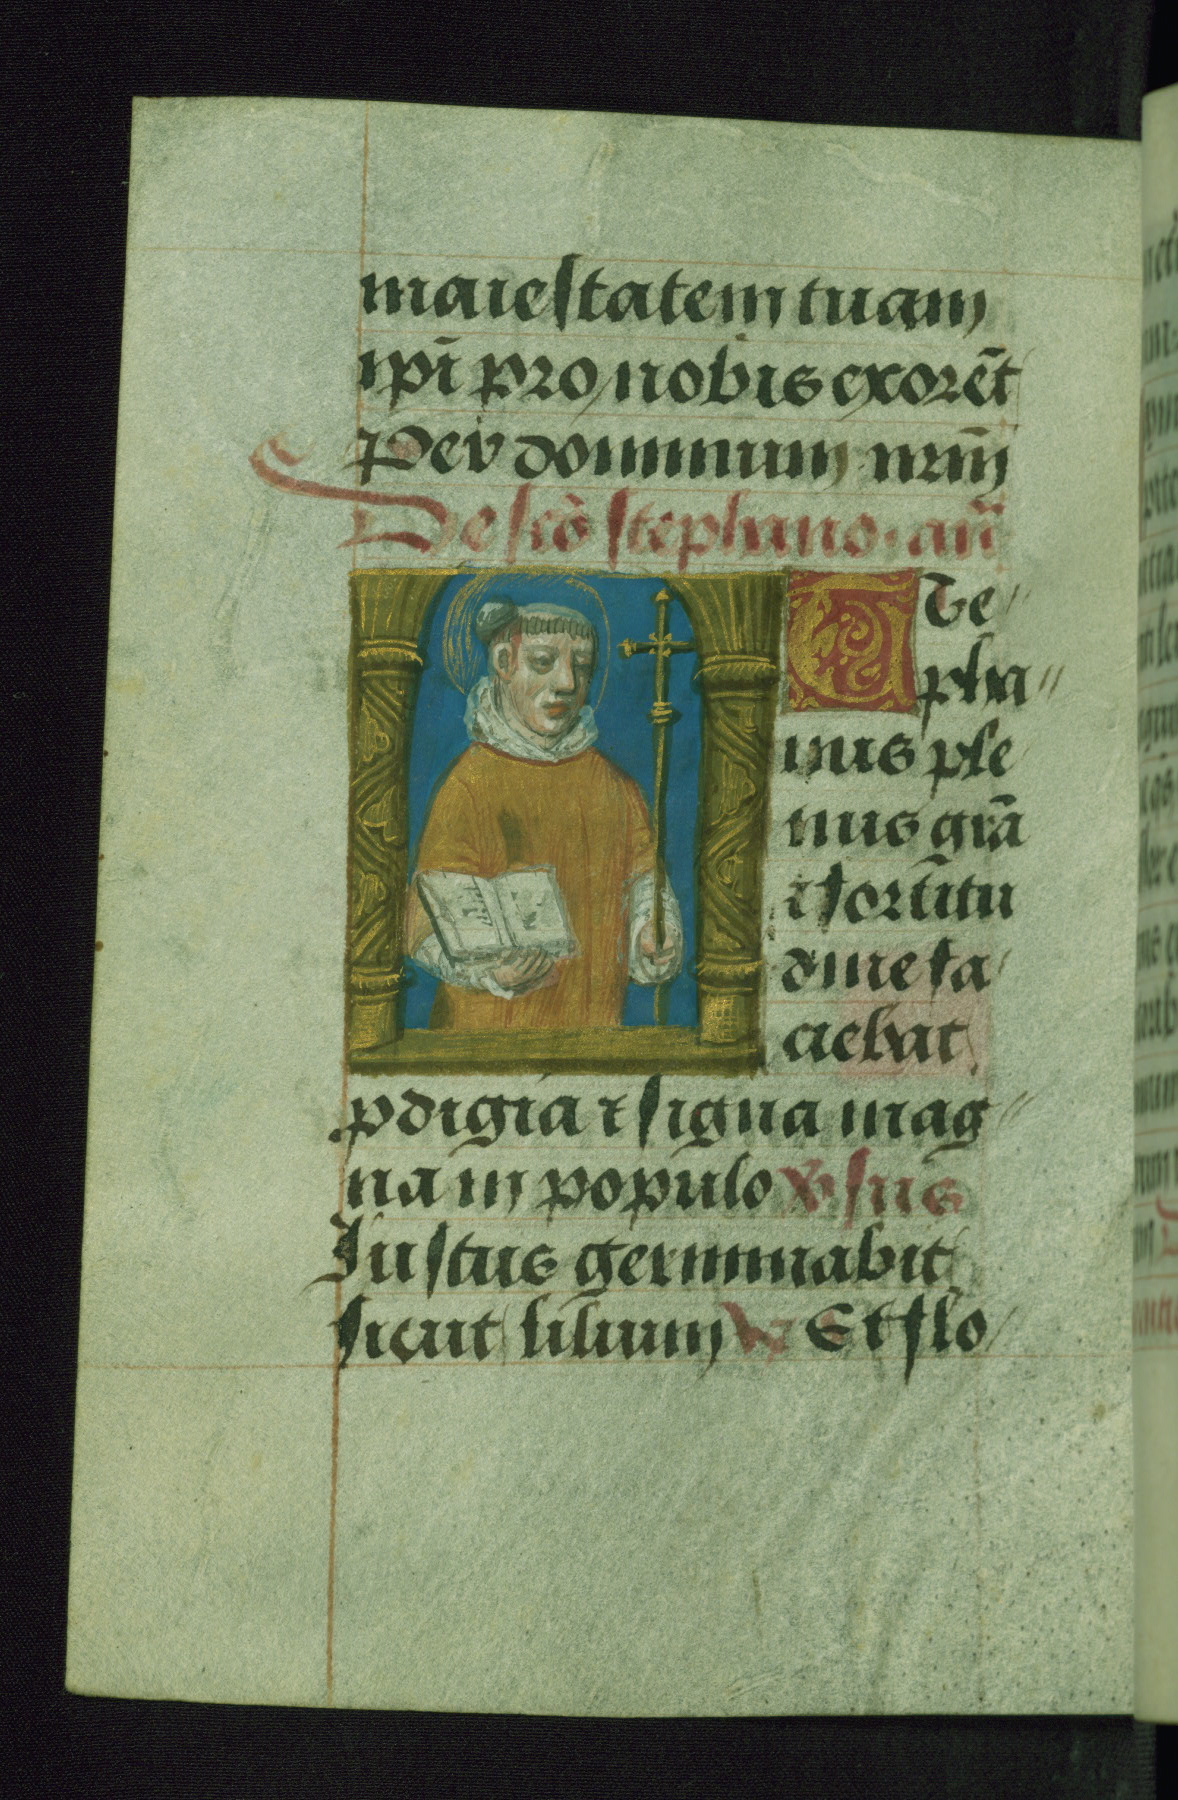 maiestatem tuam
ipi̅ pro nobis exore̅t
Per dominum nr̅m
De sc̅o stephano. an̅
Ste
pha
nus ple
nus gr̅a
⁊ fortitu
dine fa
ciebat
pdigia ⁊ signa mag
na in populo v̅sus
Iustus germinabit
sicut lilium Et flo